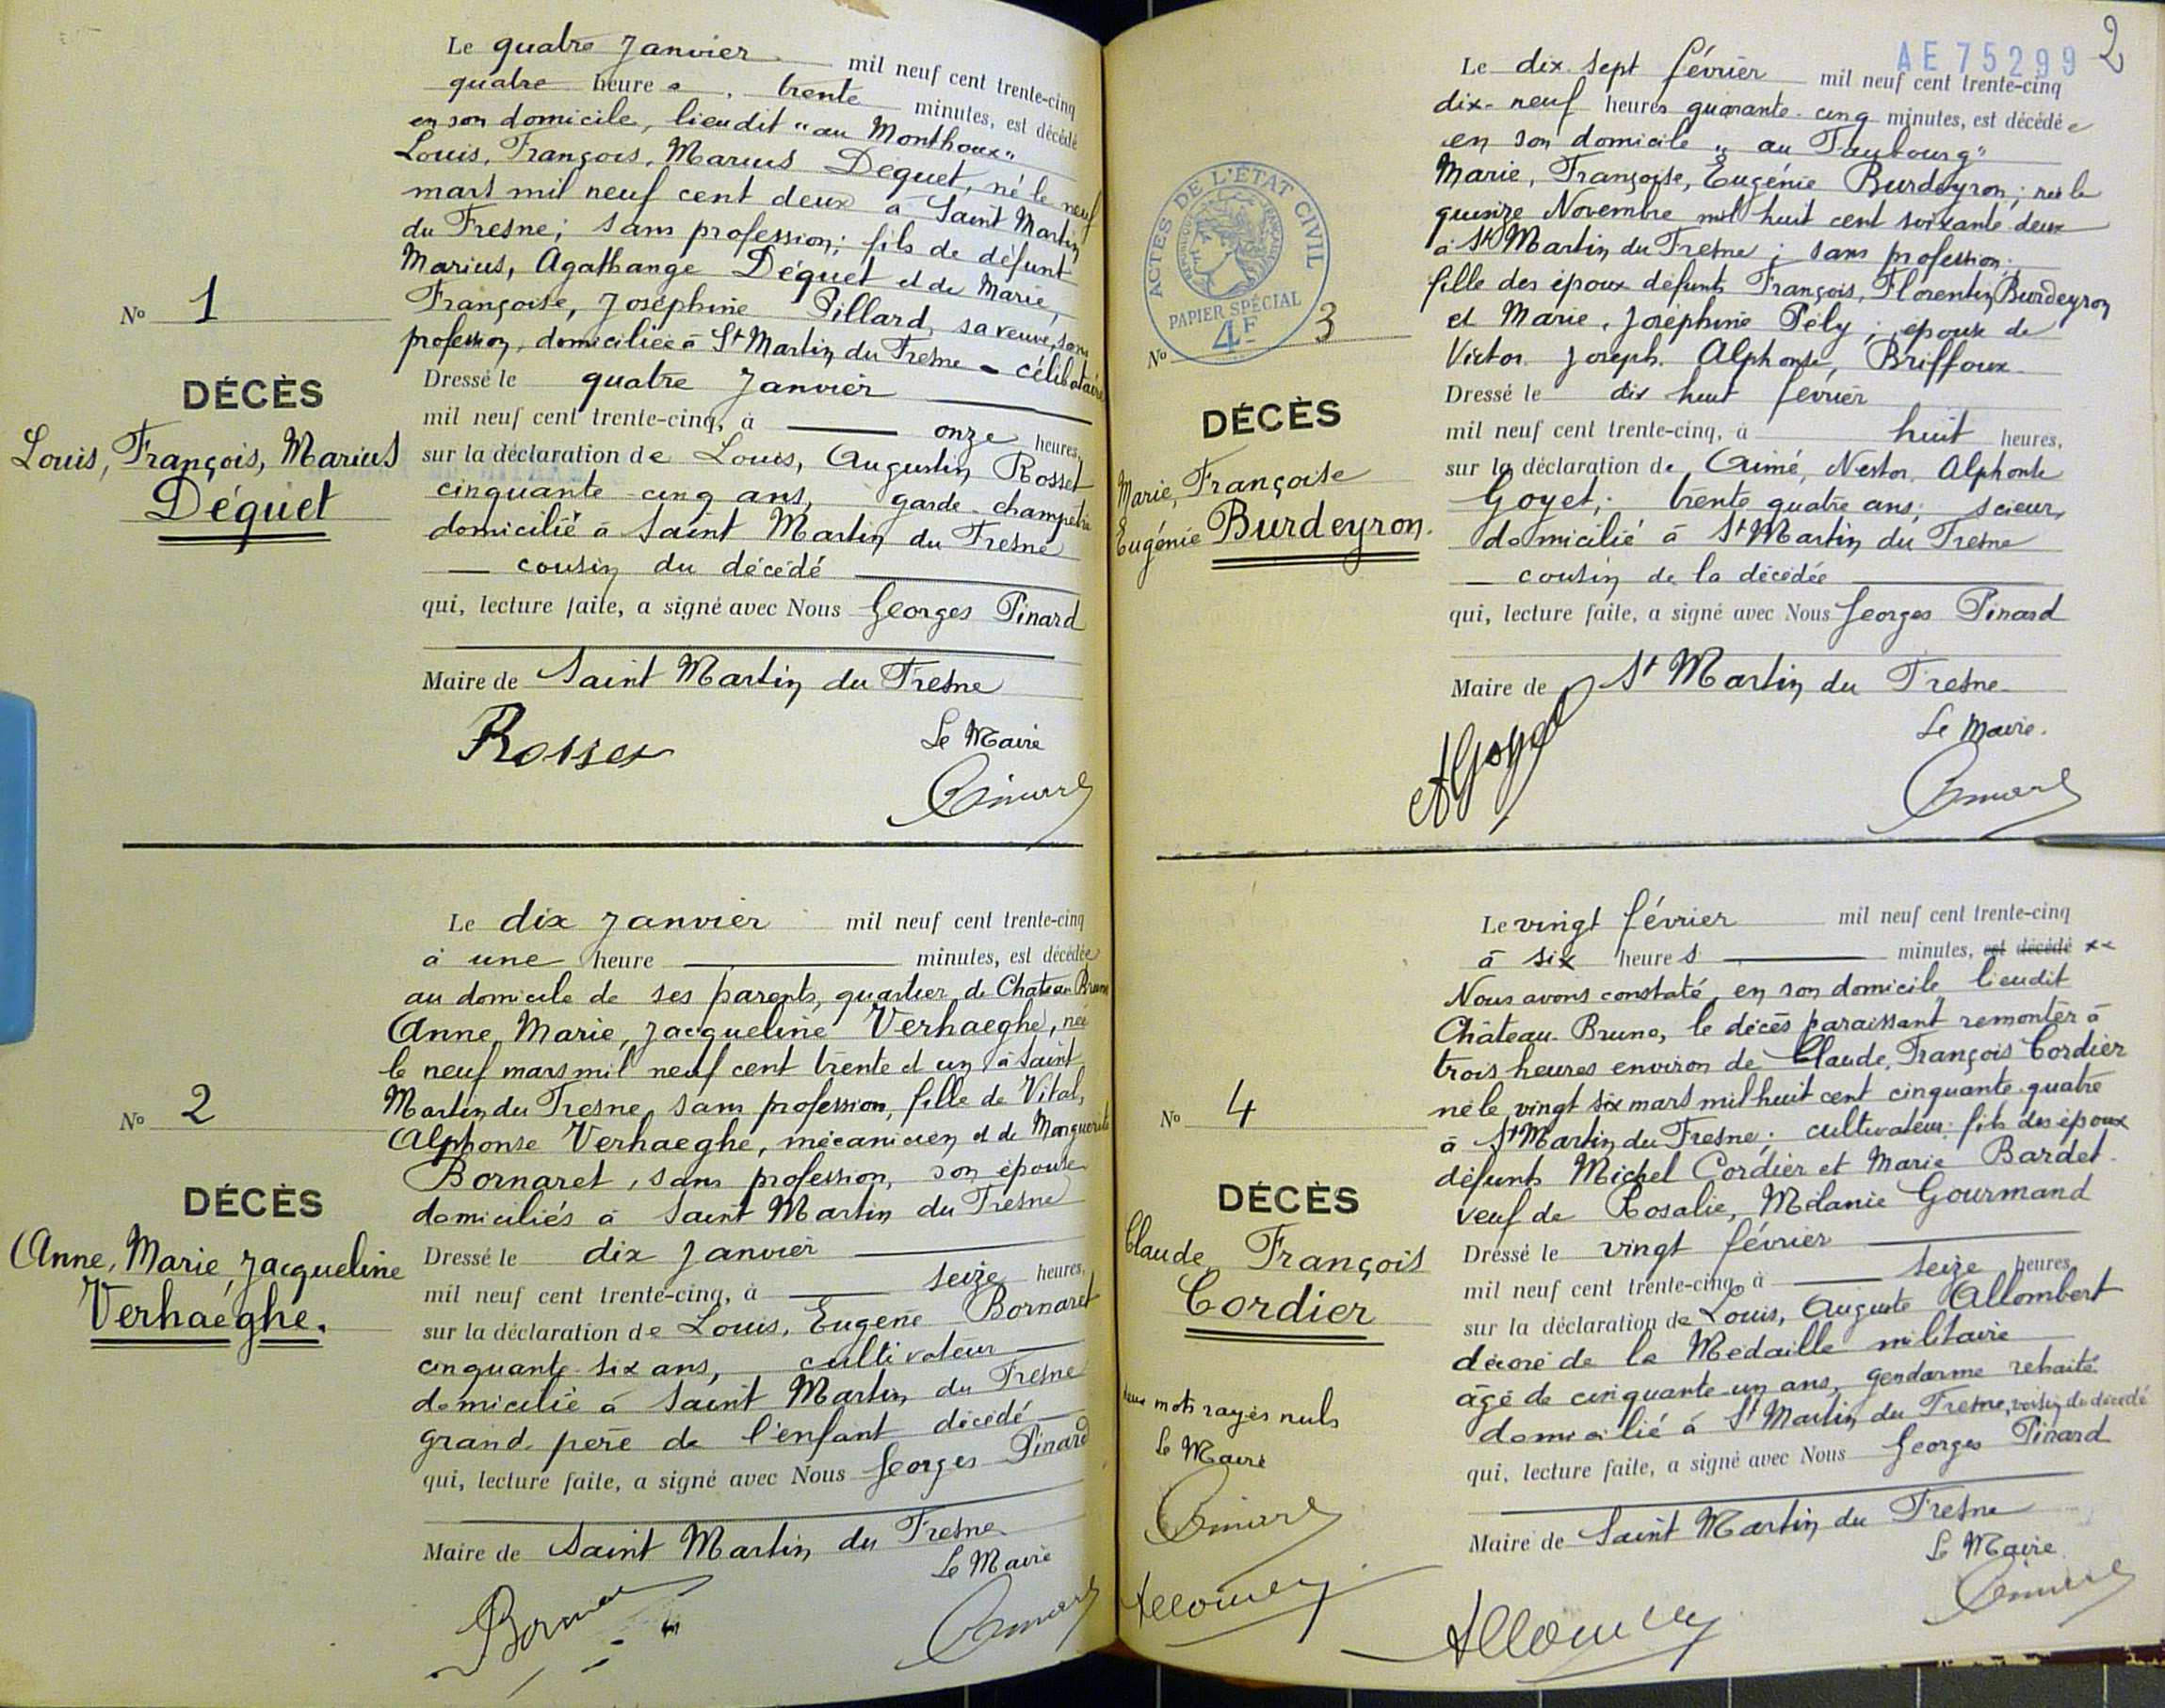 Le quatre Janvier mil neuf cent trente-cinq
quatre heures, trente minutes, est décédé
en son domicile, lieudit "au Monthoux"
Louis, François, Marius Déquet, né le neuf
mars mil neuf cent deux à Saint Martin
du Fresne; sans profession; fils de défunt
Marius, Agathange Déquet et de Marie,
Françoise, Joséphine Pillard, sa veuve, sans
profession, domiciliée à St Martin du Fresne - célibataire
No 1
DÉCÈS
Louis, François, Marius
Déquet
Dressé le quatre Janvier
mil neuf cent trente-cinq, à onze heures,
sur la déclaration de Louis, Augustin Rosset
cinquante cinq ans, garde-champêtre
domicilié à Saint Martin du Fresne
cousin du décédé
qui, lecture faite, a signé avec Nous Georges Pinard
Maire de Saint Martin du Fresne
Rosset
Le Maire
Pinard
Le dix Janvier mil neuf cent trente-cinq
à une heure minutes, est décédée
au domicile de ses parents, quartier de Château Bruno
Anne, Marie, Jacqueline Verhaeghe, née
le neuf mars mil neuf cent trente et un à Saint
Martin du Fresne, sans profession, fille de Vital,
Alphonse Verhaeghe, mécanicien et de Marguerite
Bornaret, sans profession, son épouse
domiciliés à Saint Martin du Fresne
No 2
DÉCÈS
Anne, Marie, Jacqueline
Verhaéghe.
Dressé le dix Janvier
mil neuf cent trente-cinq, à seize heures,
sur la déclaration de Louis, Eugène Bornaret
cinquante-six ans, cultivateur
domicilié à Saint Martin du Fresne
grand-père de l'enfant décédé
qui, lecture faite, a signé avec Nous Georges Pinard
Maire de Saint Martin du Fresne
Le Maire
Pinard
AE 75299
2
Le dix sept février mil neuf cent trente-cinq
dix-neuf heures quarante-cinq minutes, est décédée
en son domicile "au Faubourg"
Marie, Françoise, Eugénie Burdeyron; née le
quinze Novembre mil huit cent soixante deux
à St Martin du Fresne; sans profession;
fille des époux défunts François, Florentin Burdeyron
et Marie, Joséphine Pély; épouse de
Victor Joseph Alphonse, Briffoux
ACTES DE L'ÉTAT CIVIL
RÉPUBLIQUE FRANÇAISE
PAPIER SPÉCIAL
4F
No 3
DÉCÈS
Marie, Françoise
Eugénie Burdeyron.
Dressé le dix huit février
mil neuf cent trente-cinq, à huit heures,
sur la déclaration de Aimé, Nestor, Alphonse
Goyet; trente quatre ans; scieur,
domicilié à St Martin du Fresne
cousin de la décédée
qui, lecture faite, a signé avec Nous Georges Pinard
Maire de St Martin du Fresne
A Goyet
Le Maire.
Pinard
Le vingt février mil neuf cent trente-cinq
à six heures minutes, est décédé
Nous avons constaté, en son domicile, lieudit
Château-Bruno, le décès paraissant remonter à
trois heures environ de Claude, François Cordier
né le vingt six mars mil huit cent cinquante-quatre
à St Martin du Fresne; cultivateur; fils des époux
défunts Michel Cordier et Marie Bardet.
veuf de Rosalie, Mélanie Gourmand
No 4
DÉCÈS
Claude, François
Cordier
Dressé le vingt février
mil neuf cent trente-cinq, à seize heures
sur la déclaration de Louis, Auguste Allombert
décoré de la Médaille militaire
âgé de cinquante-un ans, gendarme retraité
domicilié à St Martin du Fresne, voisin du décédé
qui, lecture faite, a signé avec Nous Georges Pinard
Maire de Saint Martin du Fresne
Le Maire
Pinard
deux mots rayés nuls
Le Maire
Pinard